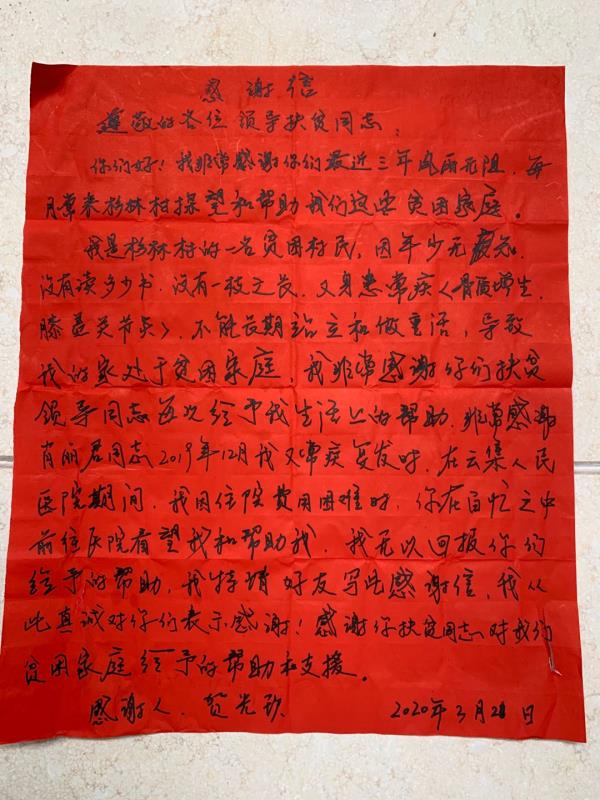 感谢信
尊敬的各位领导扶贫同志：
你们好！我非常感谢你们最近三年风雨无阻，每
月常来杉林村探望和帮助我们这些贫困家庭。
我是杉林村的一名贫困村民，因年少无知，
没有读多少书，没有一枝之长，又身患常疾<骨质增生，
膝盖关节炎>，不能长期站立和做重活，导致
我的家处于贫困家庭，我非常感谢你们扶贫
领导同志每次给予我生活上的帮助，非常感谢
肖丽君同志2019年12月我又常疾复发时，在云集人民
医院期间，我因住院费用困难时，你在百忙之中
前往医院看望我和帮助我，我无以回报你们
给予的帮助，我特请好友写此感谢信，我从
此真诚对你们表示感谢！感谢你扶贫同志对我们
贫困家庭给予的帮助和支援。
感谢人：贺光
2020年3月28日